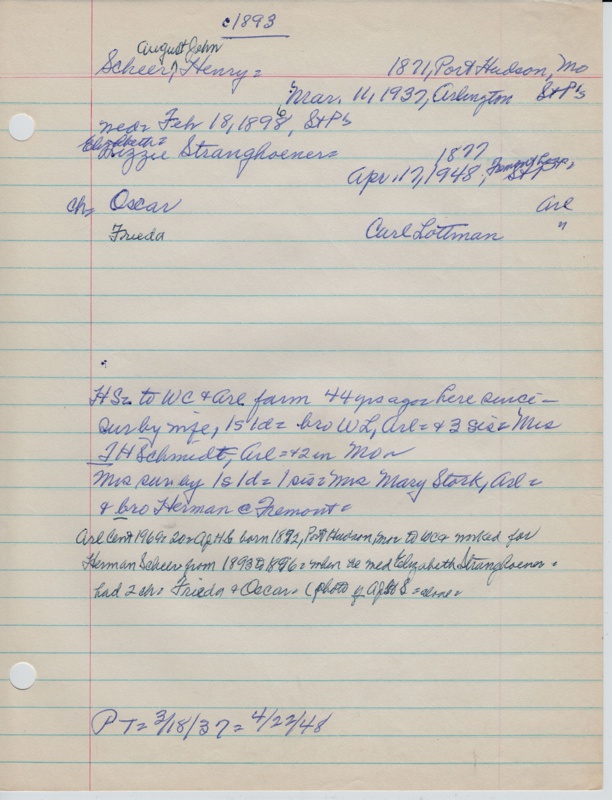 c1893
August John
Scheer, Henry = 1871, Port Hudson, Mo
Mar. 11, 1937, Arlington St P's
med = Feb 18, 1896, St P's
Elizabeth =
Lizzie Stranghoener = 1877
Apr. 17, 1948, Fremont Hosp, St P
ch, Oscar Arl
Frieda Carl Lottman "
HS = to WC & Arl farm 44 yrs ago = here since —
sur by wife, 1s 1d = bro W L, Arl = & 3 sis = Mrs
J H Schmidt, Arl = & 2 in Mo
Mrs sur by 1s 1d = 1 sis = Mrs Mary Stork, Arl =
& bro Herman c Fremont =
Arl Cent 1969: 20 = born 1872, Port Hudson, mo to WC & worked for
Herman Scheer from 1893 to 1896 = when he med Elizabeth Stranghoener =
had 2 ch = Frieda & Oscar = (photo of = alone =
P T = 3/18/37 = 4/22/48